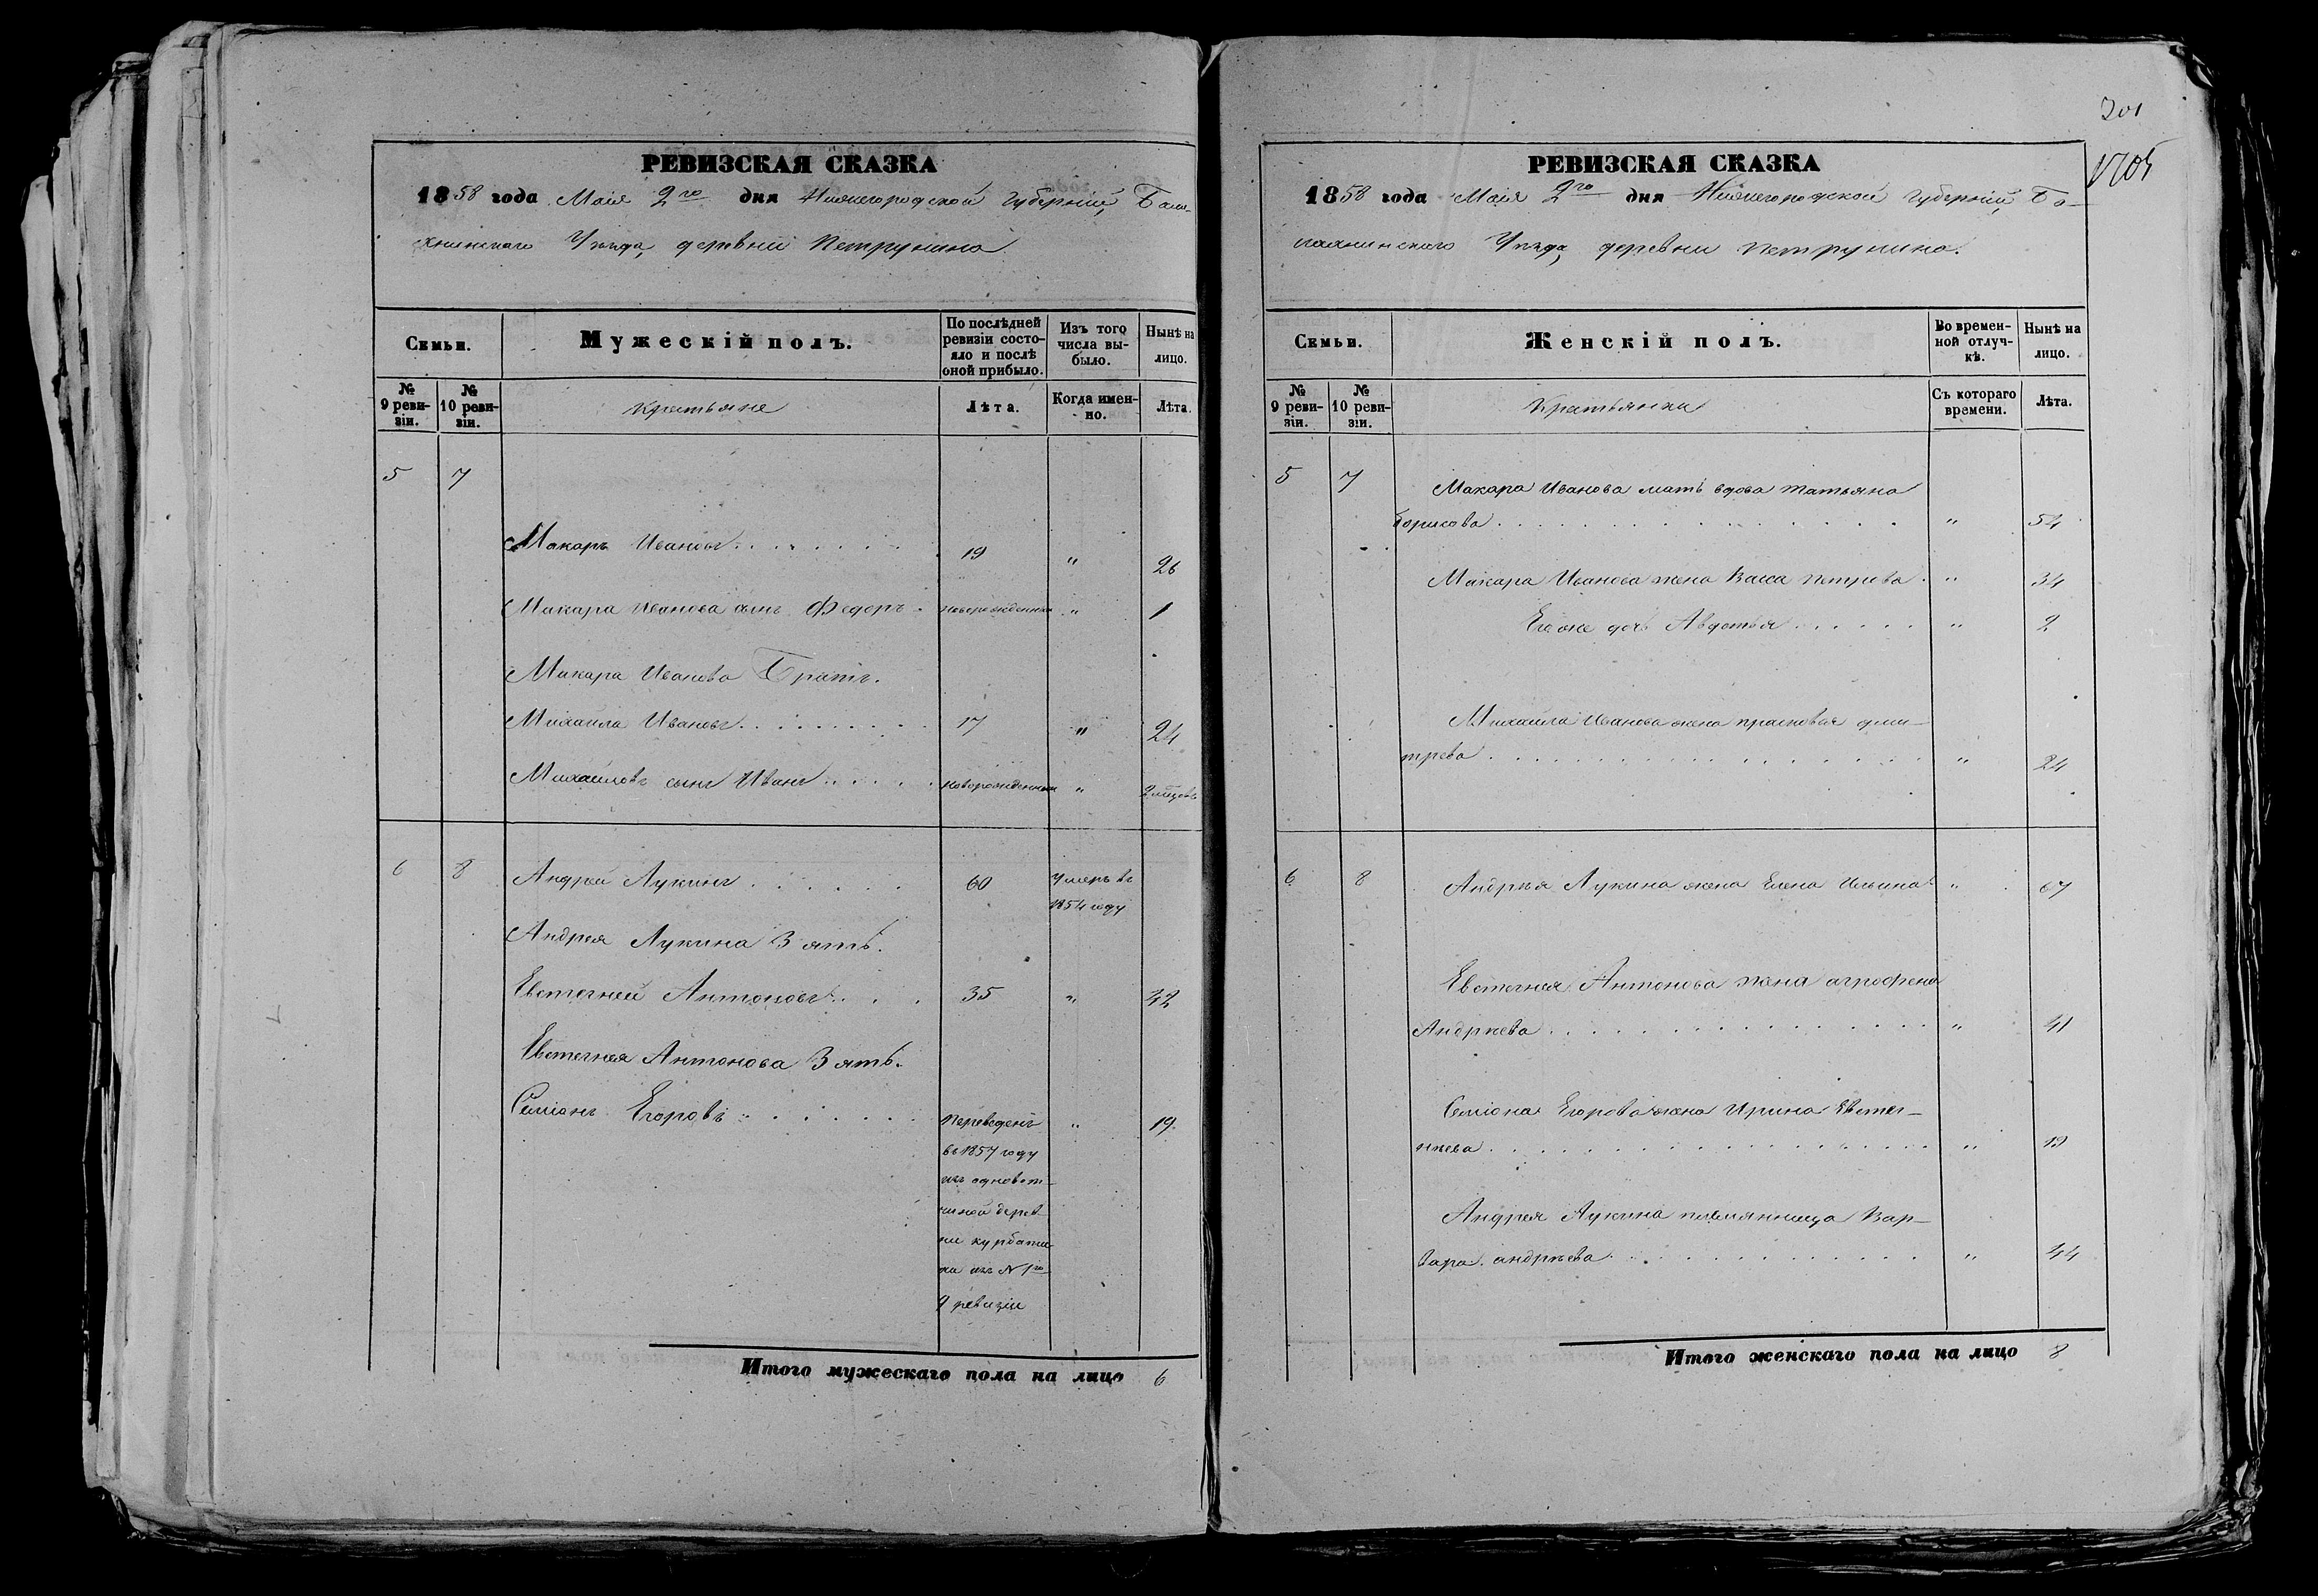 РЕВИЗСКАЯ СКАЗКА
1858 года Маія 2го дня Нижегородской Губерніи, Бала-
хнинскаго Уѣзда, деревни Петрунина
Семьи.
Мужескій полъ.
По послѣдней ревизіи состо-
яло и послѣ оной прибыло.
Изъ того числа вы-
было.
Нынѣ на лицо.
№ 9 реви-
зіи.
№ 10 реви-
зіи.
Крестьяне
Лѣта.
Когда имен-
но.
Лѣта.
5 7
Макаръ Ивановъ 19 " 26
Макара Иванова сынъ Федоръ новорожденный " 1
Макара Иванова Братъ.
Михаила Ивановъ 17 " 24
Михаиловъ сынъ Иванъ новорожденный "
6 8 Андрей Лукинъ 60 Умеръ въ
1854 году
Андрея Лукина Зять.
Евстегней Антоновъ 35 " 42
Евстегнея Антонова Зять.
Семіонъ Егоровъ переведенъ " 19
въ 1857 году
изъ одновот-
чиной дерев-
ни курбати-
ха изъ N 1го
9 ревизіи
Итого мужескаго пола на лицо 6
201
РЕВИЗСКАЯ СКАЗКА
1858 года Маія 2го дня Нижегородской Губерніи, Ба-
лахнинскаго Уѣзда, деревни Петрунина.
Семьи.
Женскій полъ.
Во времен-
ной отлуч-
кѣ.
Нынѣ на лицо.
№ 9 реви-
зіи.
№ 10 реви-
зіи.
Крестьянки
Съ котораго времени.
Лѣта.
5 7 Макара Иванова мать вдова Татьяна
Борисова " 54
Макара Иванова жена Васса Петрова " 34
Его же дочь Авдотья " 2
Михаила Иванова жена прасковья дми-
трева " 24
6 8 Андрѣя Лукина жена Елена Ильина " 67
Евстегнея Антонова жена агрофена
Андрѣева " 41
Семіона Егорова жена Ирина Евстег-
нѣева " 19
Андрея Лукина племянница Вар-
вара андрѣева " 44
Итого женскаго пола на лицо 8